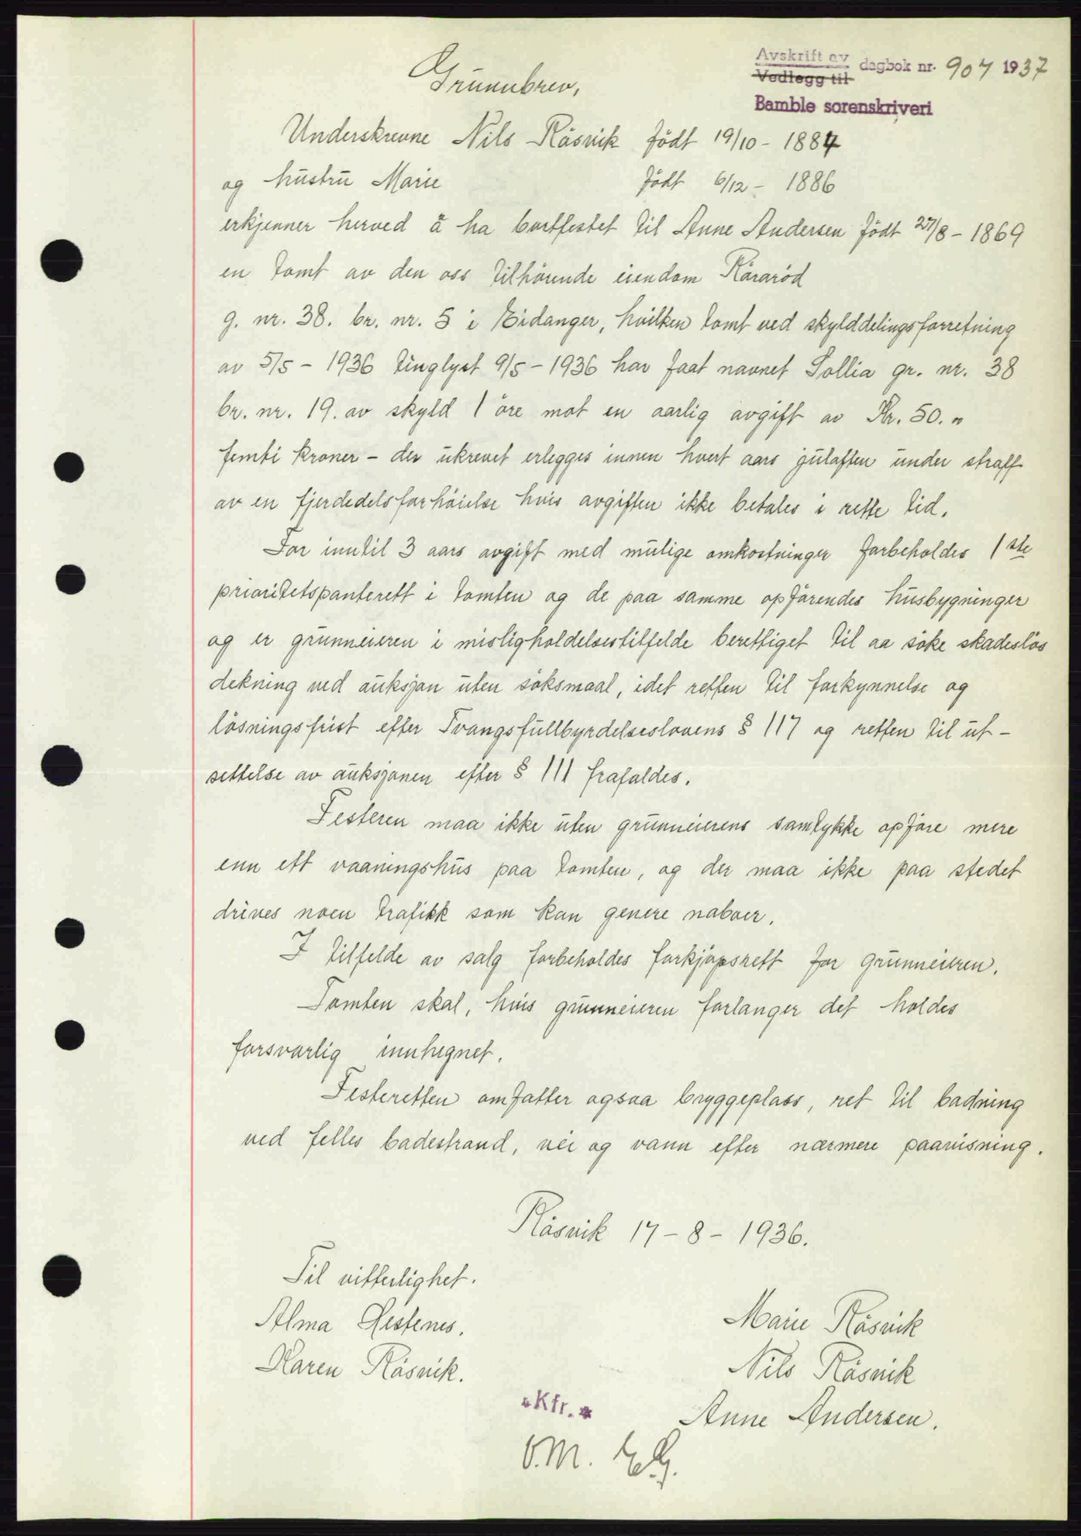 Avskrift av
Vedlegg til dagbok nr. 907 1937
Bamble sorenskriveri
Grunnbrev,
Underskrevne Nils Råsvik födt 19/10 - 1884
og hustru Marie födt 6/12 - 1886
erkjenner herved å ha bortfestet til Anne Andersen födt 27/8 - 1869
en tomt av den oss tilhörende eiendom Röraröd
g. nr. 38. br. nr. 5 i Eidanger, hvilken tomt ved skylddelingsforretning
av 5/5 - 1936 tinglyst 9/5 - 1936 har faat navnet Sollia gr. nr. 38
br. nr. 19. av skyld 1 öre mot en aarlig avgift av Kr. 50. "
femti kroner - der ukrevet erlegges innen hvert aars julaften under straff
av en fjerdedels forhöielse hvis avgiften ikke betales i rette tid.
For inntil 3 aars avgift med mulige omkostninger forbeholdes 1ste
prioritetspanterett i tomten og de paa samme opförendes husbygninger
og er grunneieren i misligholdelsestilfelde berettiget til aa söke skadeslös
dekning ved auksjon uten söksmaal, idet retten til forkynnelse og
lösningsfrist efter Tvangsfullbyrdelseslovens § 117 og retten til ut-
settelse av auksjonen efter § 111 frafaldes.
Festeren maa ikke uten grunneierens samtykke opföre mere
enn ett vaaningshus paa tomten, og der maa ikke paa stedet
drives noen trafikk som kan genere naboer.
I tilfelde av salg forbeholdes forkjöpsrett for grunneieren.
Tomten skal, hvis grunneieren forlanger det holdes
forsvarlig innhegnet.
Festeretten omfatter ogsaa bryggeplass, ret til badning
ved felles badestrand, vei og vann efter nærmere paavisning.
Råsvik 17 - 8 - 1936.
Til vitterlighet.
Alma Hestenes.
Marie Råsvik
Karen Råsvik.
Nils Råsvik
Anne Andersen.
*Kfr.*
O.M. E.G.